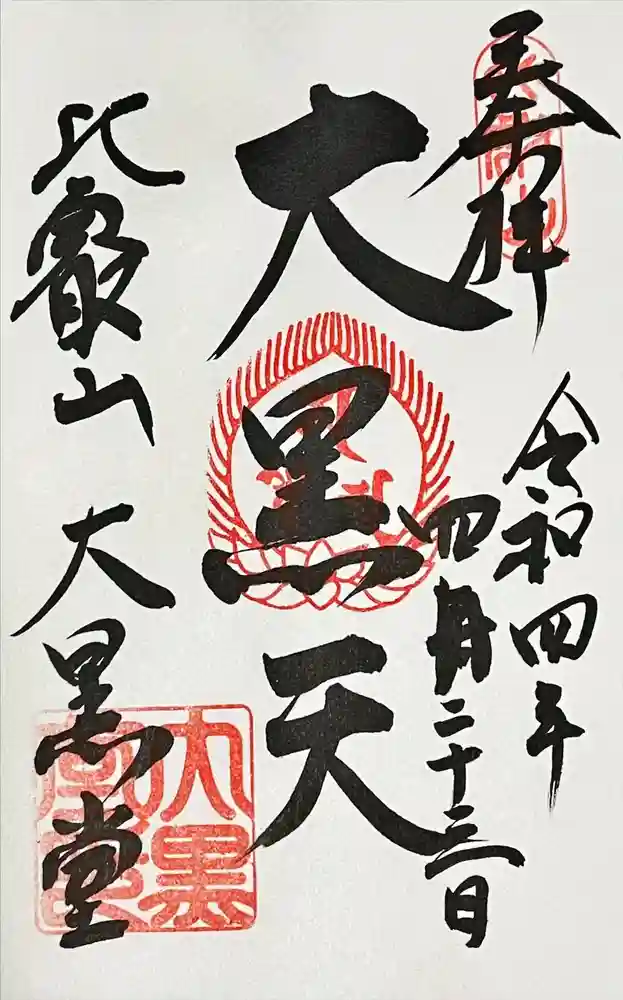 奉拝
令和四年
四月二十三日
大黒天
比叡山 大黒堂
大黒